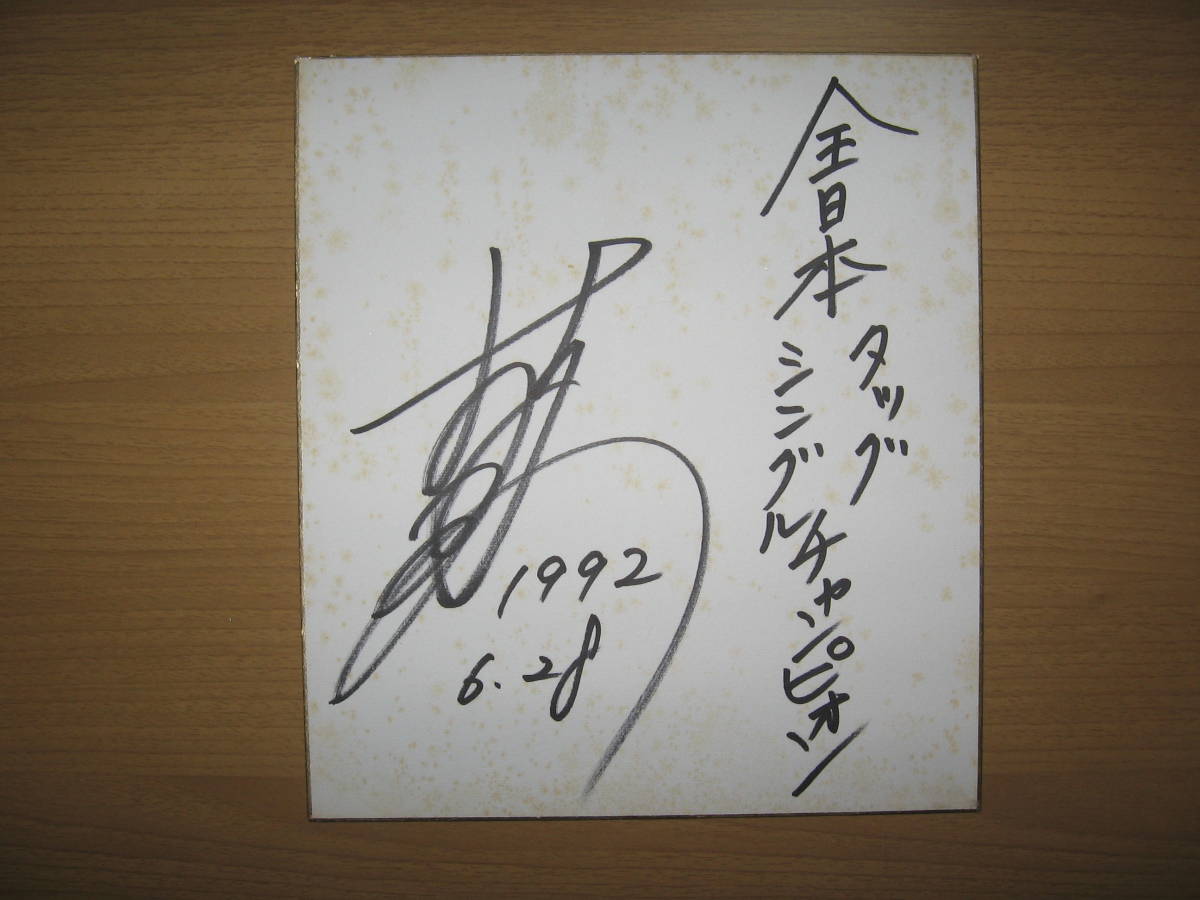 全日本
タッグ
シングル
チャンピオン
1992
6.28